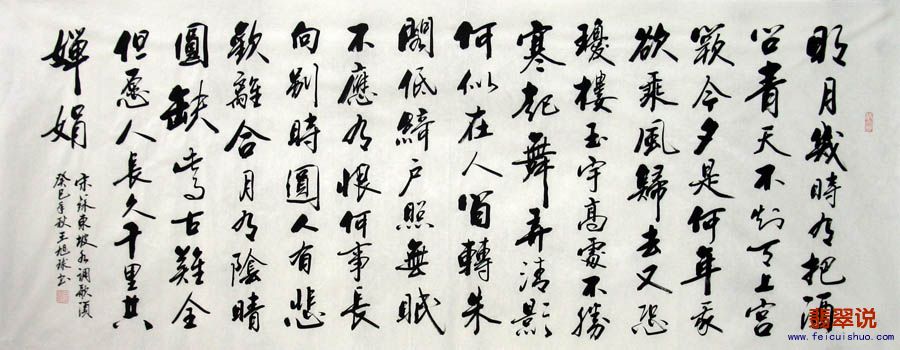 明月幾時有把酒
问青天不知天上宮
闕今夕是何年我
欲乘風歸去又恐
瓊樓玉宇高處不勝
寒起舞弄清影
何似在人間轉朱
閣低綺户照無眠
不應有恨何事長
向别時圓人有悲
歡離合月有陰晴
圓缺此事古難全
但愿人長久千里共
嬋娟
宋蘇東坡水调歌頭
癸巳年秋王旭球書
翡翠说
www.feicuishuo.com